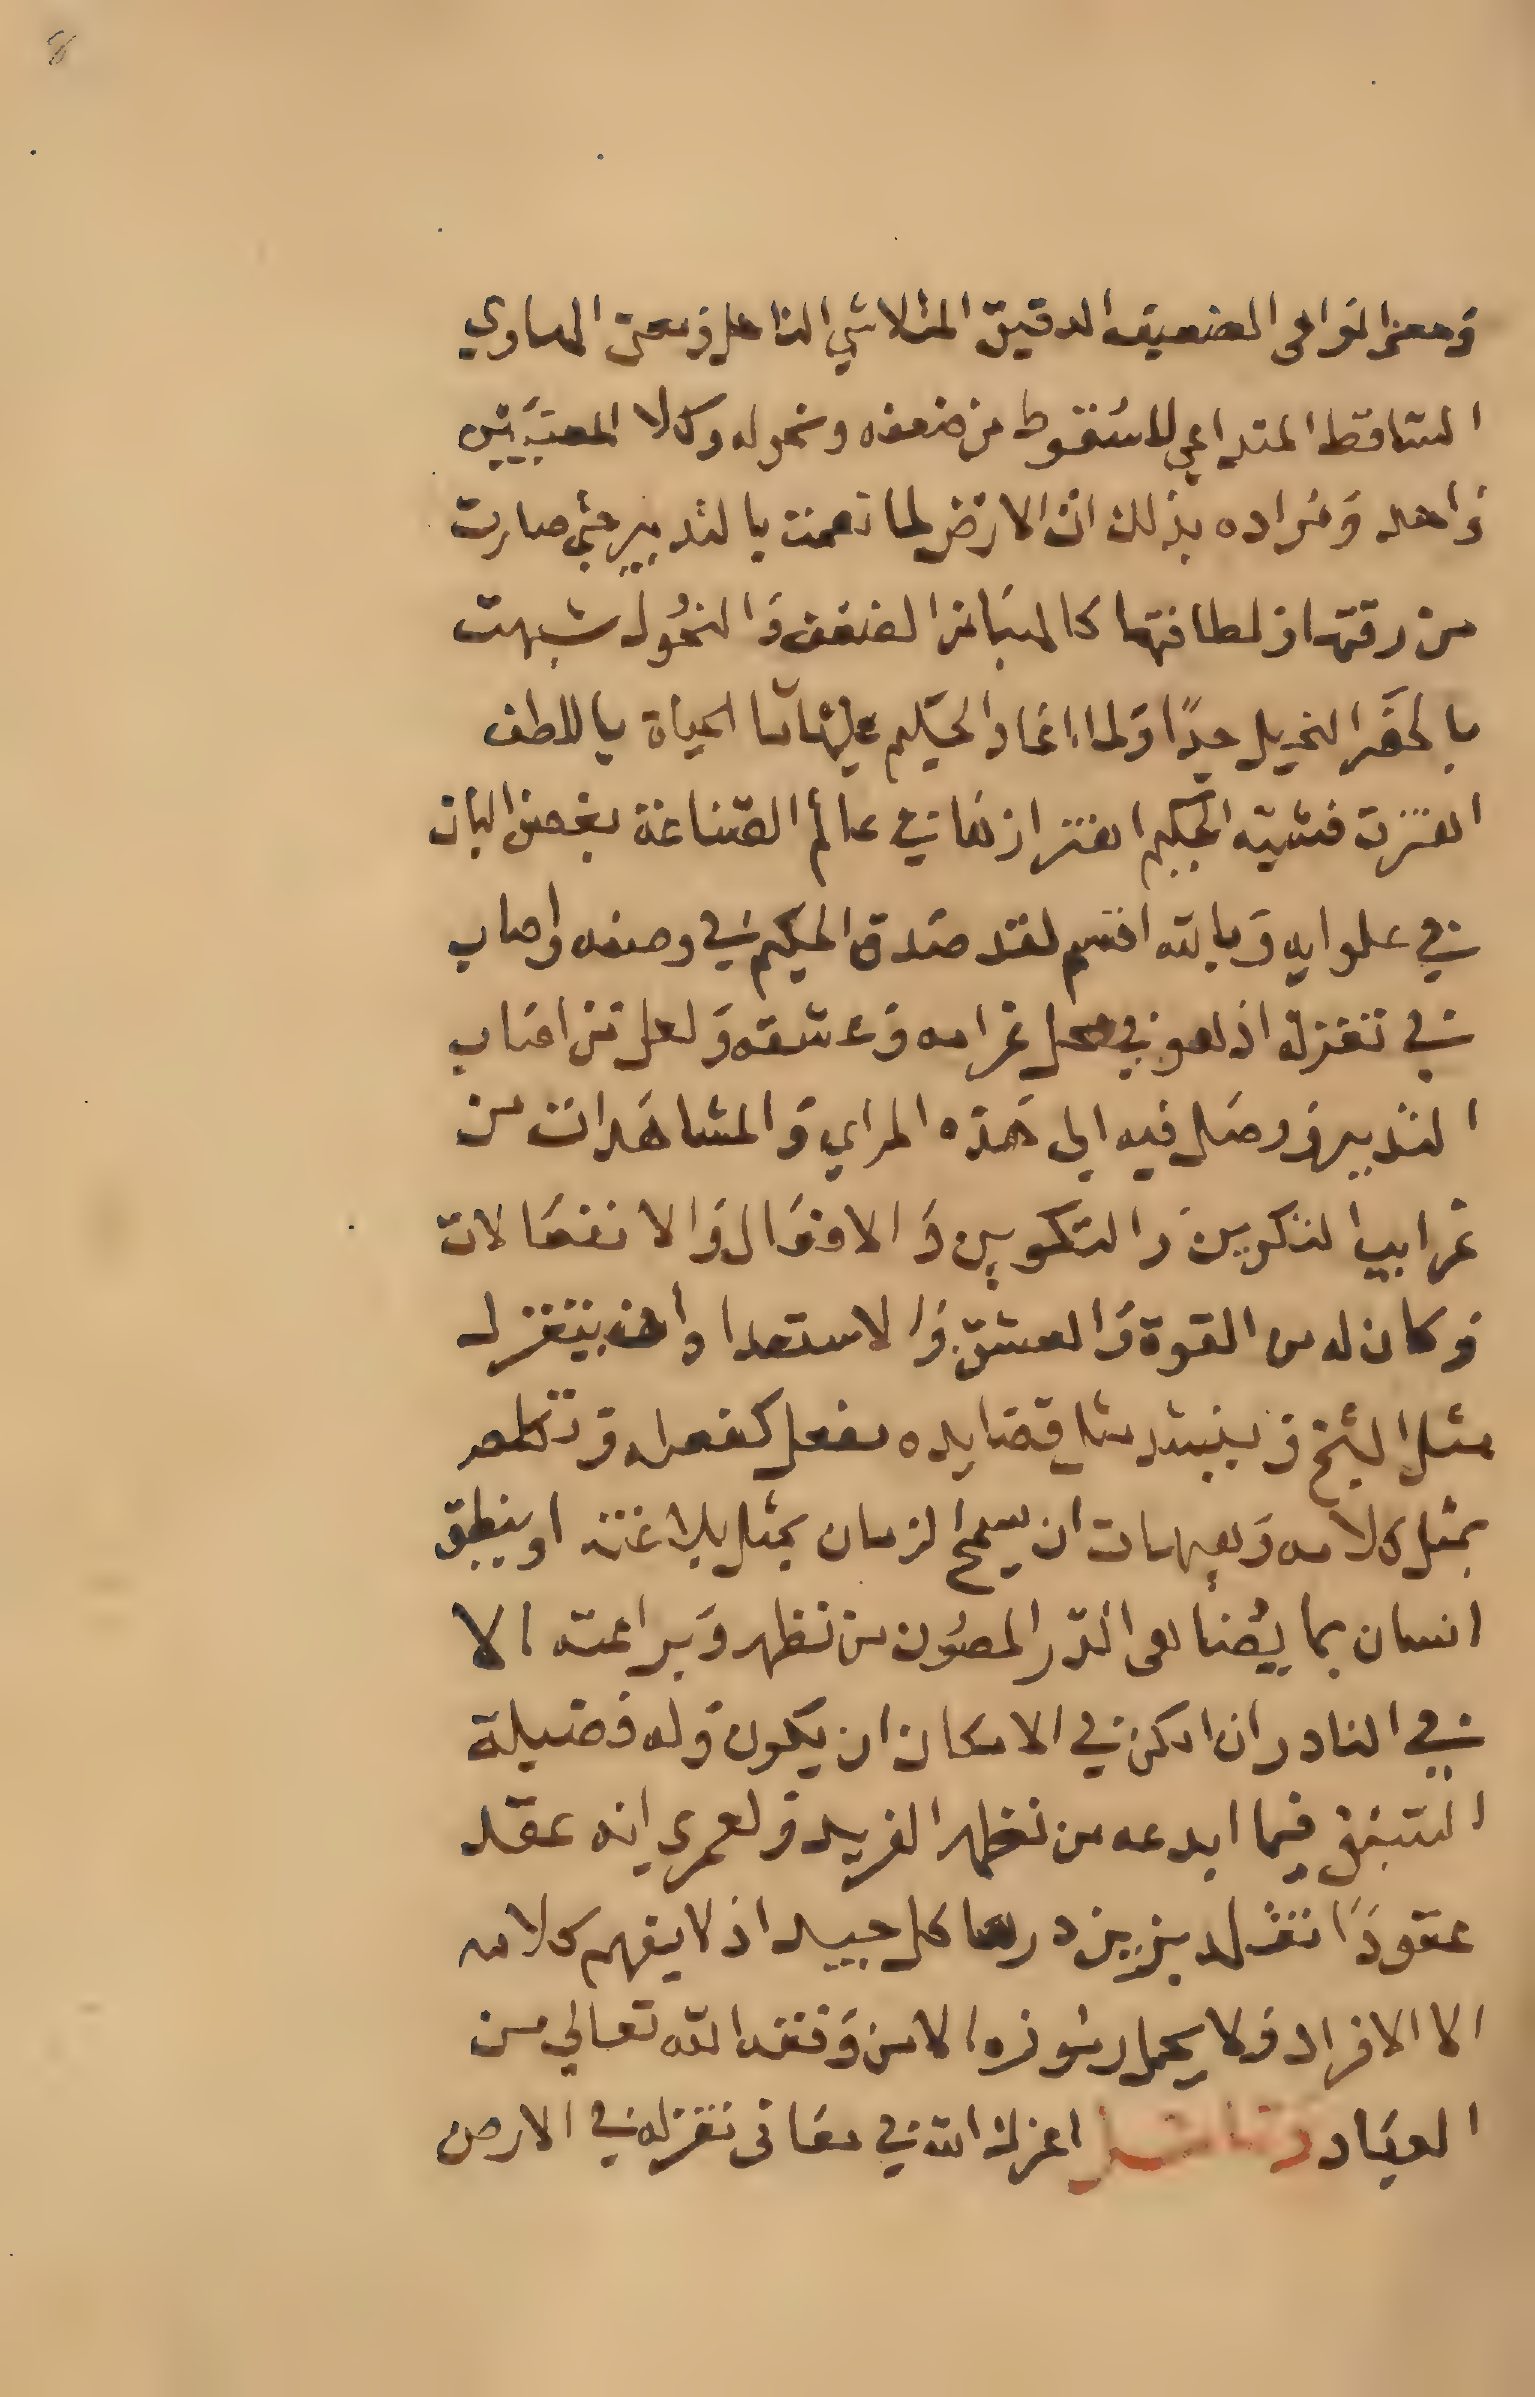 8
ومعنى الواهي الضعيف الدقيق المتلاشي الناحل ومعنى الهاوي
الساقط المتداعي للسقوط من ضعفه ونحوله وكلا المعنيين
واحد ومراده بذلك ان الارض لما نعمت بالتدبير حتى صارت
من رقتها ولطافتها كالهباء من الضعف والنحول شبهت
بالخصر النحيل جدا ولما اعاد الحكيم عليها ما الحياة باللطف
اهتزت فشبه الحكيم اهتزازها في عالم الصناعة بغصن البان
في علوايه وبالله اقسم لقد صدق الحكيم في وصفه واصاب
في تغزله اذ هو في محل غرامه وعشقه ولعل من اصاب
التدبير ووصل فيه الى هذه المراي والمشاهدات من
غرايب التكوين والتكوين والافعال والانفعالات
وكان له من القوة والعشق والاستعداد انه يتغزل
مثل الشيخ وينشد مثل قصايده يفعل كفعله وتكلم
بمثل كلامه وهيهات ان يسمح الزمان بمثل بلاغته او ينطق
انسان بما يضاهي الدر المصون من نظمه وبراعته الا
في النادر ان امكن في الامكان ان يكون وله فضيلة
السبق فيما ابدعه من نظمه الفريد ولعمري انه عقد
عقودا تتقلد بزين درها كل جيد اذ لا يفهم كلامه
الا الافراد ولا يحل رموزه الا من وفقه الله تعالى من
العباد اعزك الله في معاني تغزله في الارض